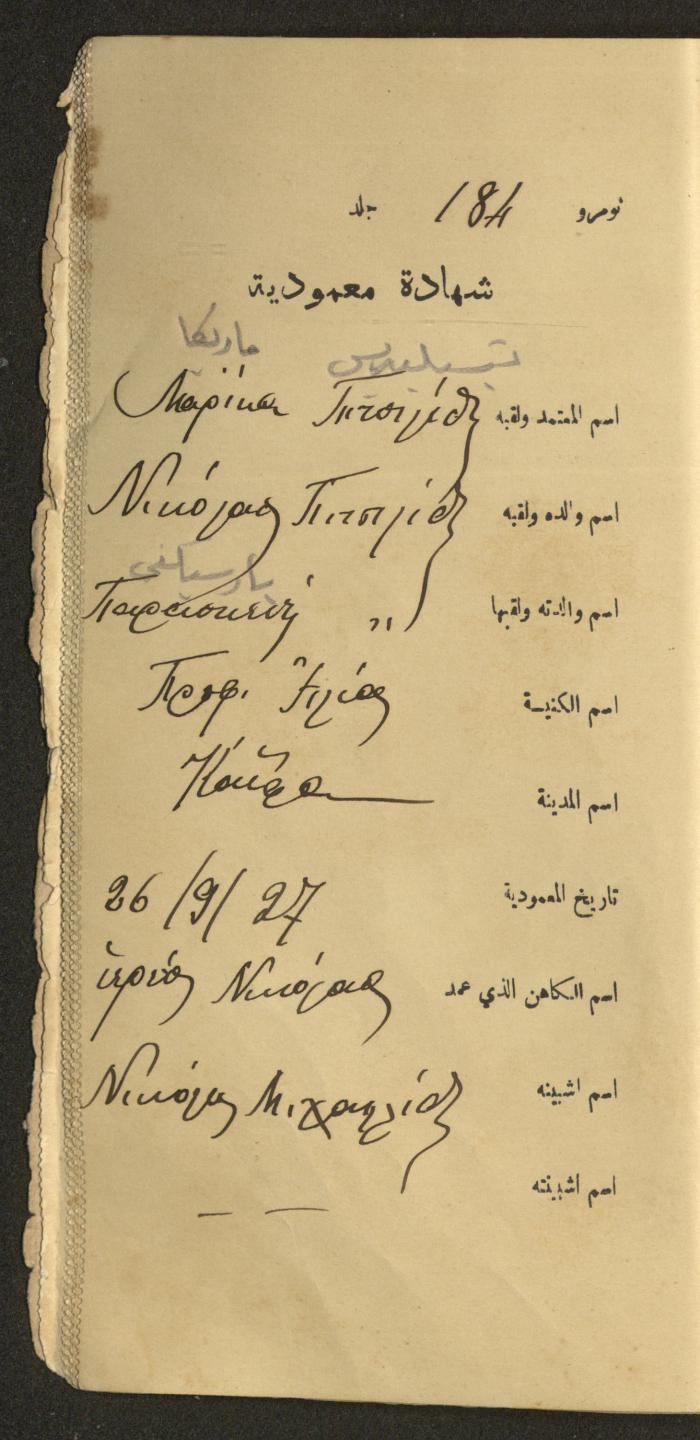 نومرو 184 جلد
شهادة معمودية
ماريكا
اسم المعتمد ولقبه Μαρίκα Πιτσιλίδ
اسم والده ولقبه Νικόλαος Πιτσιλίδ
اسم والدته ولقبها Παρασκευή "
اسم الكنيسة Προφ. Ἠλίας
اسم المدينة Χάιφα
تاريخ المعمودية 26/9/27
اسم الكاهن الذي عمد ἱερεύς Νικόλαος
اسم اشبينه Νικόλας Μιχαηλίδ
اسم اشبينته — —